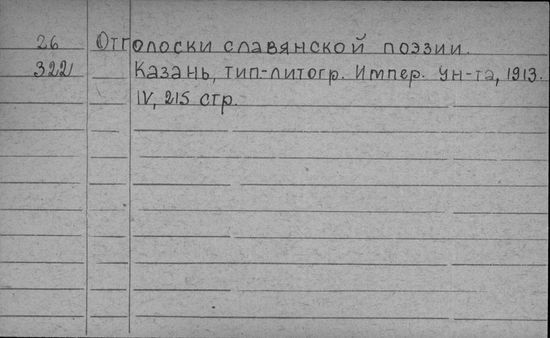 26 Отголоски славянской поэзии.
322 Казань, тип-литогр. Импер. ун-та, 1913.
IV, 215 стр.